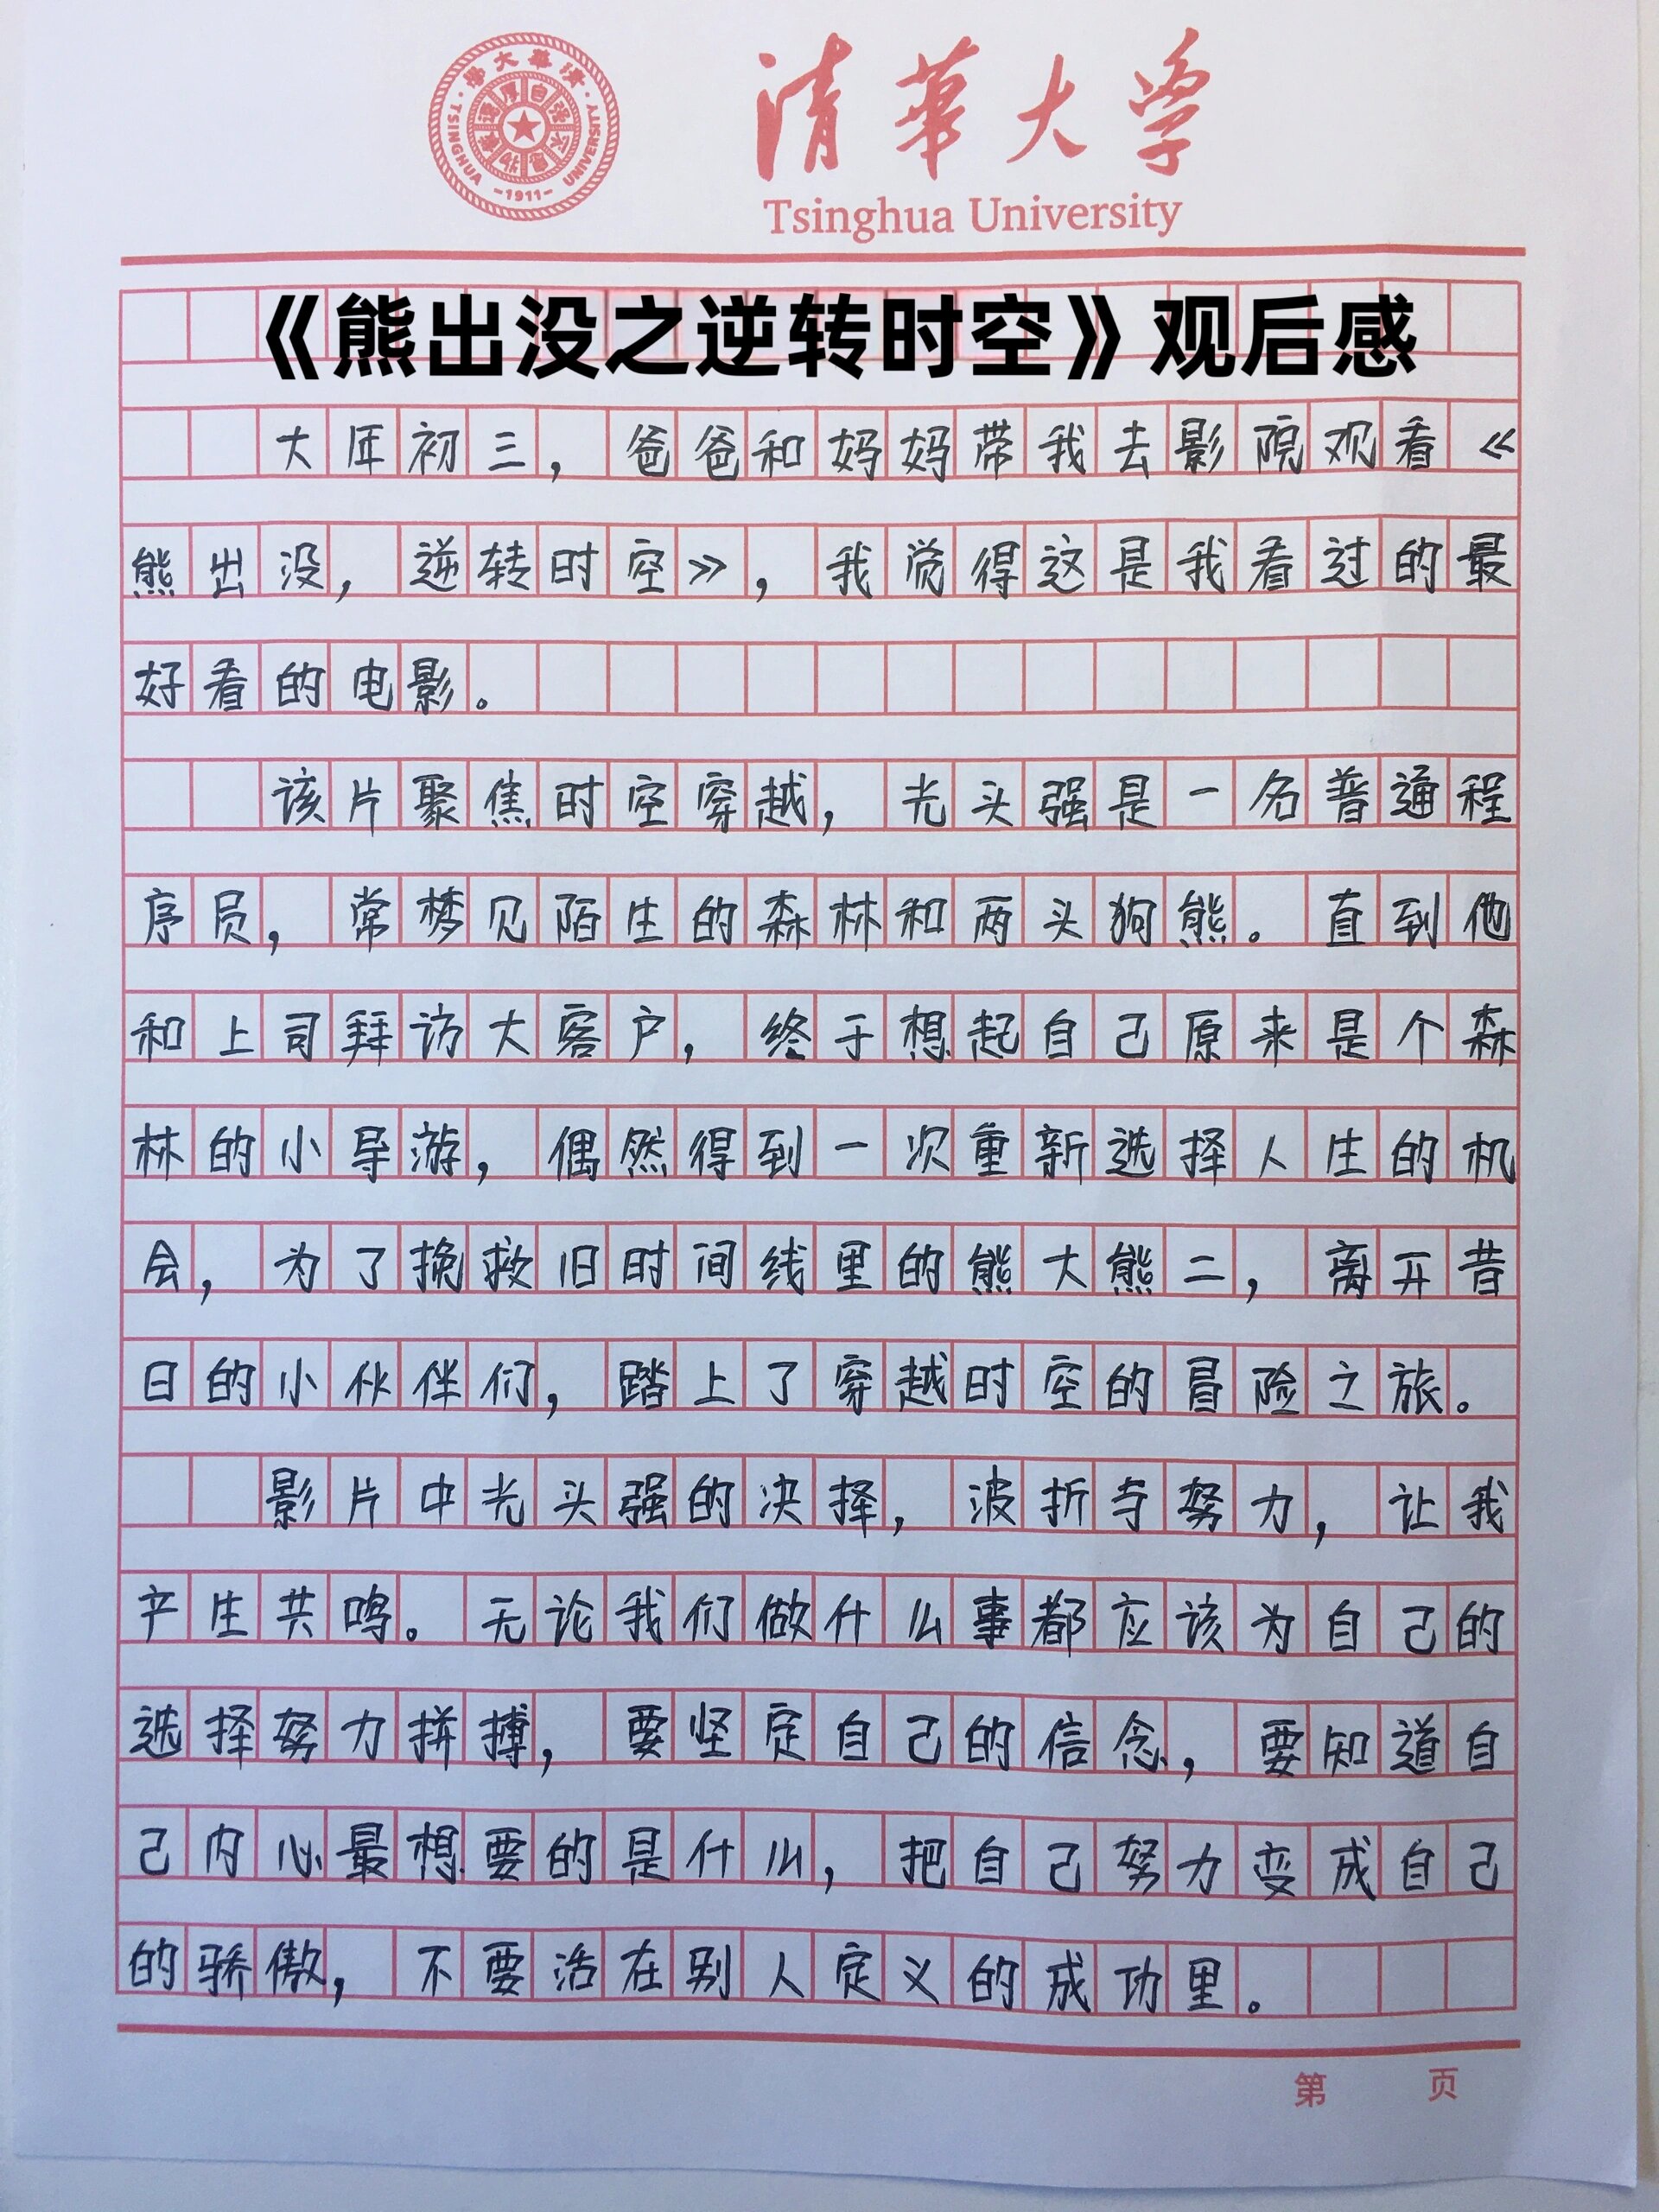 清华大学
TSINGHUA UNIVERSITY
-1911-
清華大学
Tsinghua University
《熊出没之逆转时空》观后感
大年初三，爸爸和妈妈带我去影院观看《
熊出没，逆转时空》，我觉得这是我看过的最
好看的电影。
该片聚焦时空穿越，光头强是一名普通程
序员，常梦见陌生的森林和两头狗熊。直到他
和上司拜访大客户，终于想起自己原来是个森
林的小导游，偶然得到一次重新选择人生的机
会，为了挽救旧时间线里的熊大熊二，离开昔
日的小伙伴们，踏上了穿越时空的冒险之旅。
影片中光头强的决择，波折与努力，让我
产生共鸣。无论我们做什么事都应该为自己的
选择努力拼搏，要坚定自己的信念，要知道自
己内心最想要的是什么，把自己努力变成自己
的骄傲，不要活在别人定义的成功里。
第 页